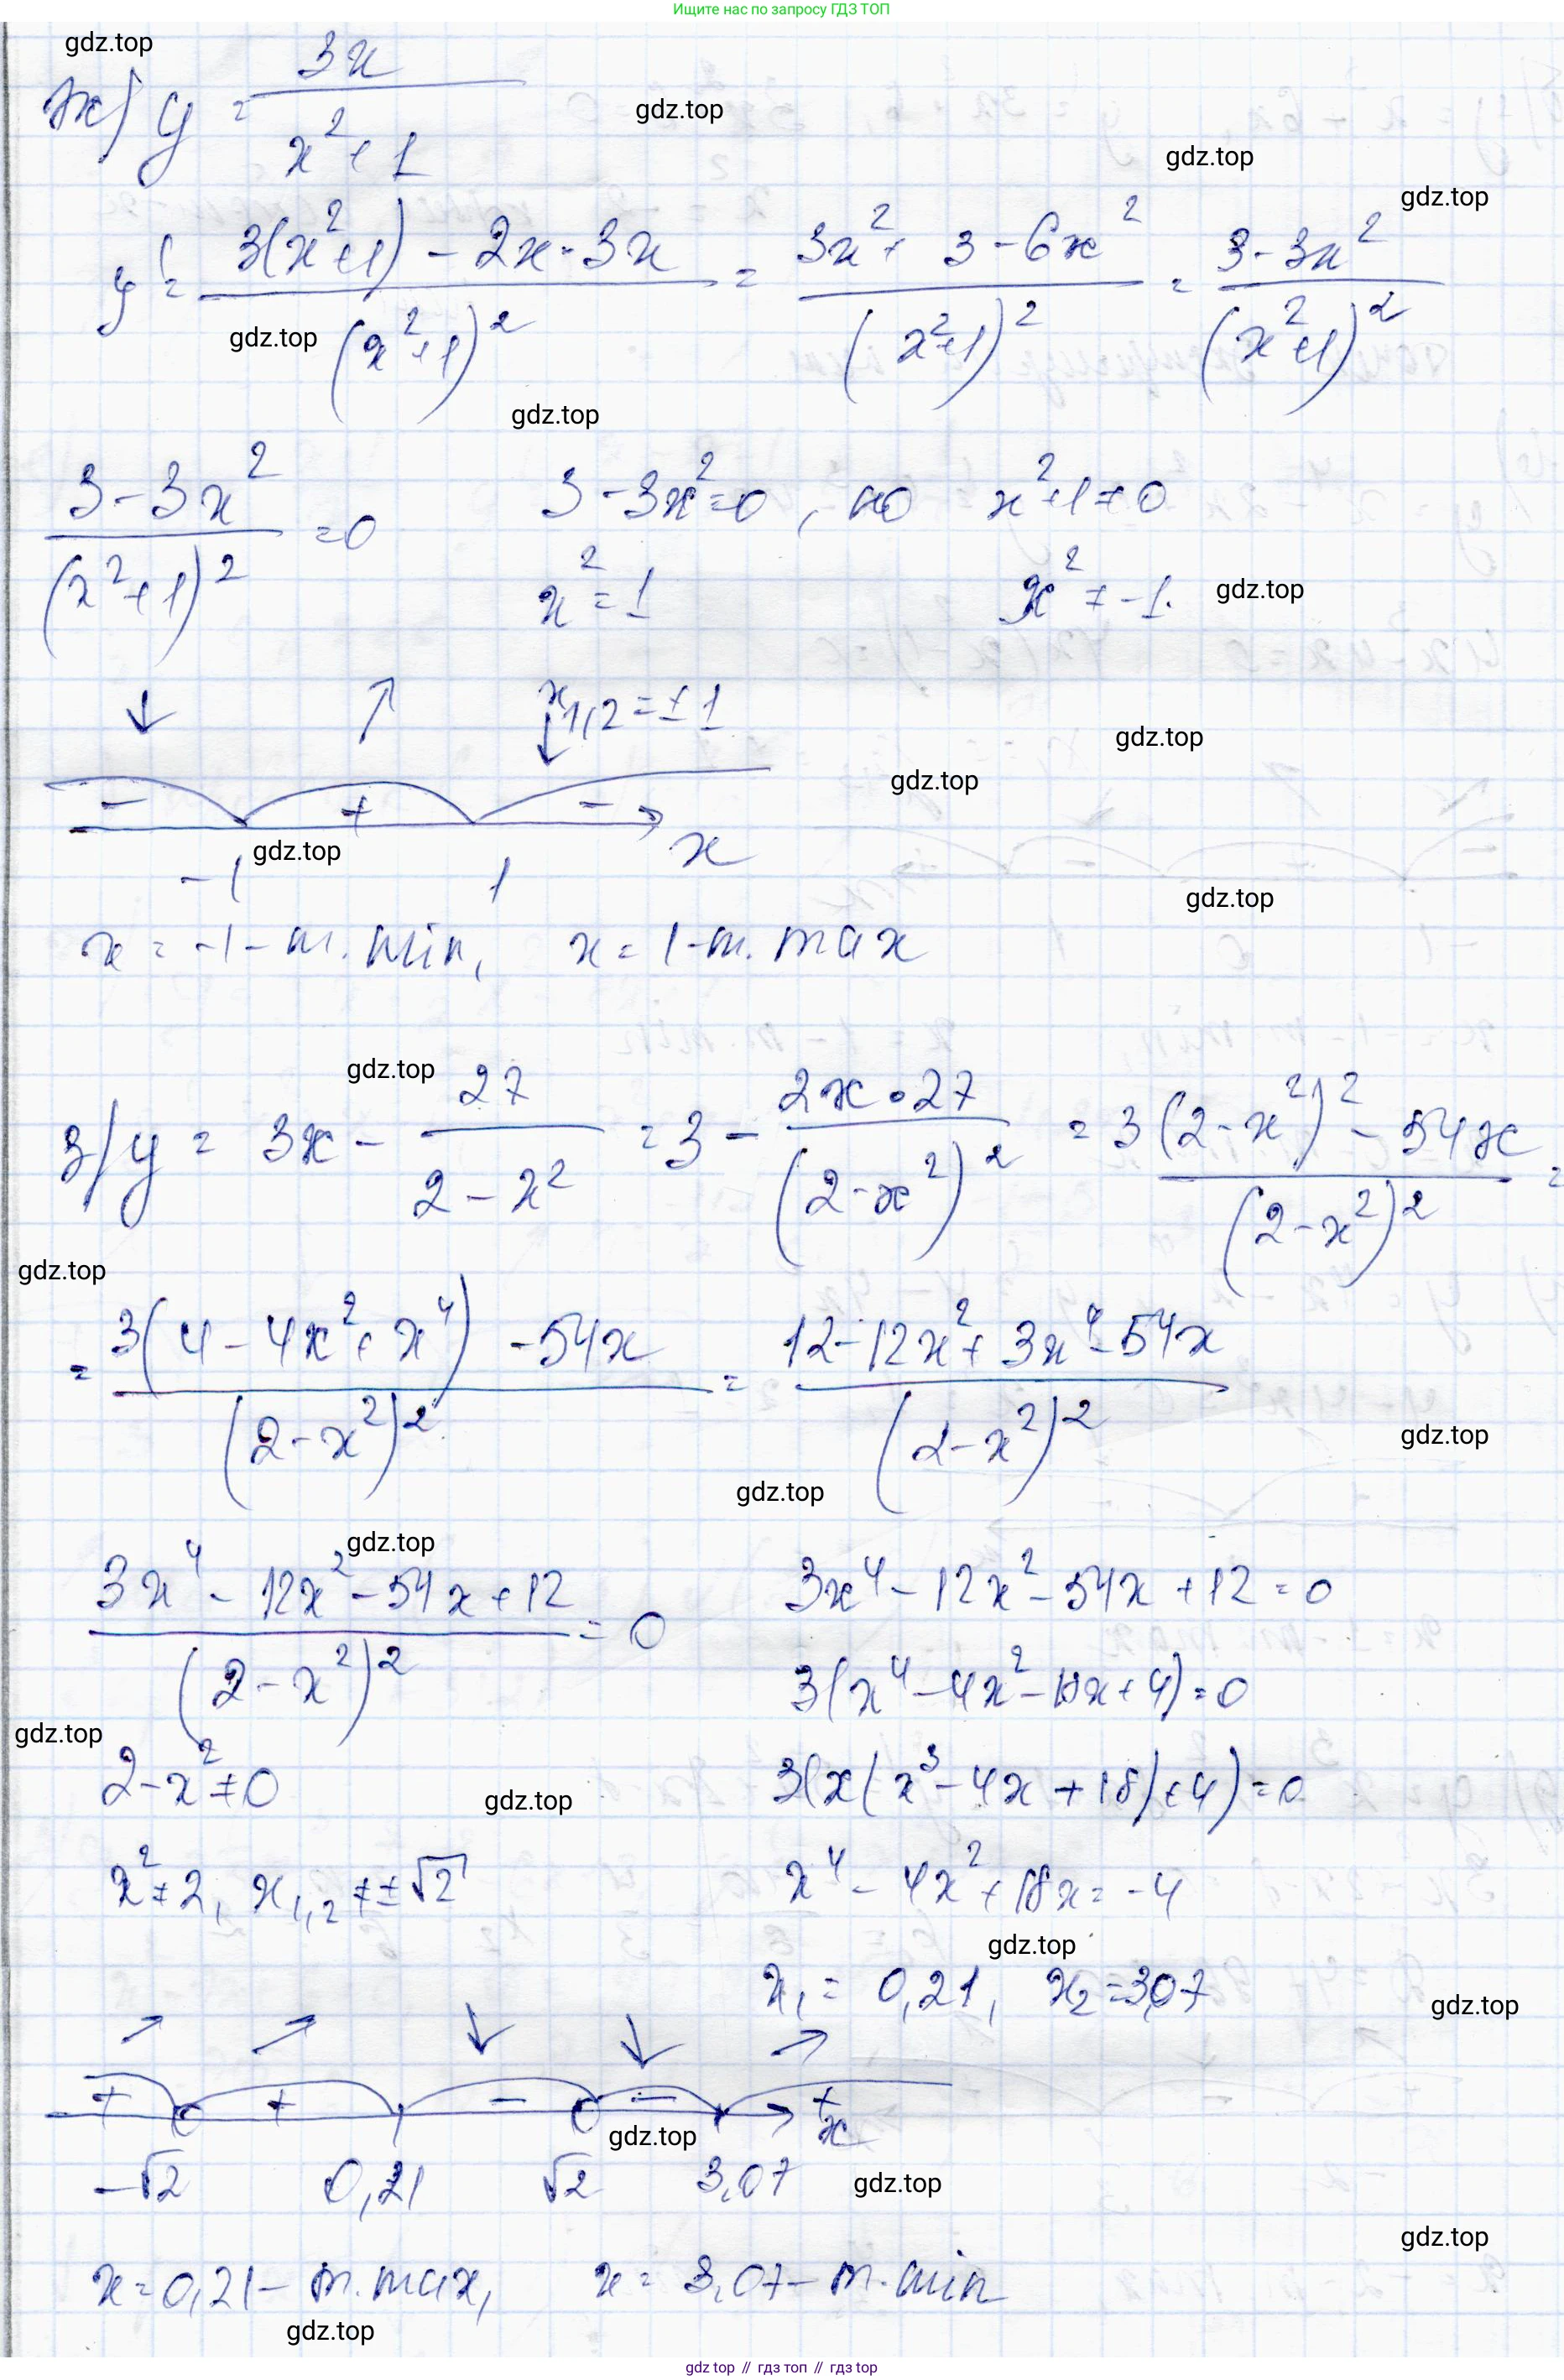 Ищите нас по запросу ГДЗ ТОП
gdz.top
ж) y = 3x / (x² + 1)
gdz.top
gdz.top
gdz.top
y' = (3(x²+1) - 2x·3x) / (x²+1)² = (3x² + 3 - 6x²) / (x²+1)² = (3 - 3x²) / (x²+1)²
gdz.top
gdz.top
(3 - 3x²) / (x²+1)² = 0   3 - 3x² = 0, но x²+1 ≠ 0
x² = 1   x² ≠ -1.
gdz.top
↓ ↗ x₁,₂ = ±1
↓
gdz.top
gdz.top
- + - x
gdz.top
-1 1
gdz.top
x = -1 - т. min, x = 1 - т. max
gdz.top
з) y = 3x - 27 / (2 - x²) = 3 - 2x·27 / (2-x²)² = (3(2-x²)² - 54x) / (2-x²)² =
gdz.top
= (3(4 - 4x² + x⁴) - 54x) / (2-x²)² = (12 - 12x² + 3x⁴ - 54x) / (2-x²)²
gdz.top
gdz.top
gdz.top
(3x⁴ - 12x² - 54x + 12) / (2-x²)² = 0   3x⁴ - 12x² - 54x + 12 = 0
3(x⁴ - 4x² - 18x + 4) = 0
gdz.top
2 - x² ≠ 0   3(x(x³ - 4x + 18) + 4) = 0
gdz.top
x² ≠ 2, x₁,₂ ≠ ±√2   x⁴ - 4x² + 18x = -4
gdz.top
x₁ = 0,21, x₂ = 3,07
gdz.top
↗ ↗ ↓ ↓ ↗
+ + - - + x
gdz.top
-√2 0,21 √2 3,07
gdz.top
gdz.top
x = 0,21 - т. max, x = 3,07 - т. min
gdz.top
gdz top // гдз топ // gdz top